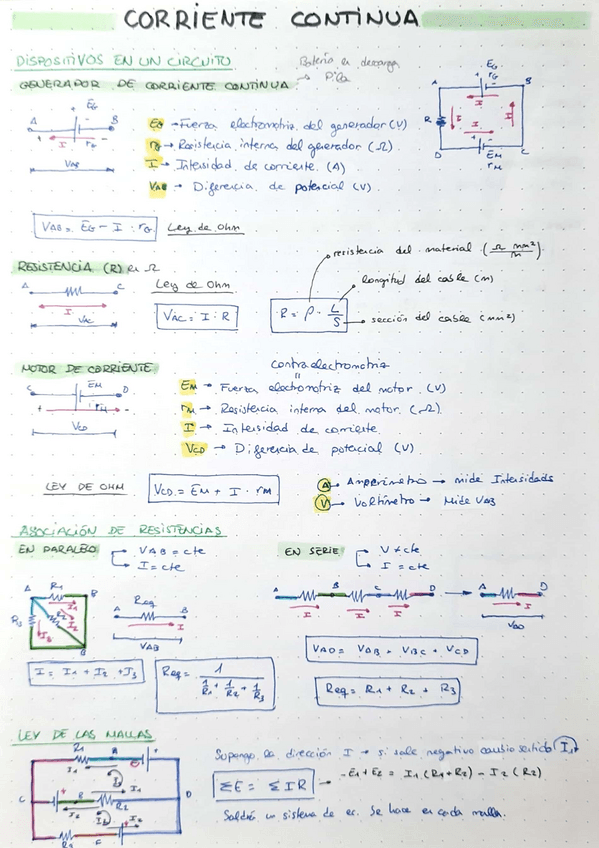 CORRIENTE CONTINUA
DISPOSITIVOS EN UN CIRCUITO
Batería en descarga
→ Pila
GENERADOR DE CORRIENTE CONTINUA
A + EG - B
+ I rG -
VAB
EG → Fuerza electromotriz del generador (V)
rG → Resistencia interna del generador (Ω)
I → Intensidad de corriente (A)
VAB → Diferencia de potencial (V)
EG
rG
A + - B
I
R I I
I
D + - C
EM
rM
VAB = EG - I · rG Ley de Ohm
RESISTENCIA (R) en Ω
A C
I
VAC
Ley de Ohm
VAC = I · R
resistencia del material (Ω mm²/m)
longitud del cable (m)
R = ρ · L/S
sección del cable (mm²)
MOTOR DE CORRIENTE
C EM D
+ I rM -
VCD
contraelectromotriz
"
EM → Fuerza electromotriz del motor (V)
rM → Resistencia interna del motor (Ω)
I → Intensidad de corriente
VCD → Diferencia de potencial (V)
LEY DE OHM VCD = EM + I · rM
A → Amperímetro → mide Intensidades
V → Voltímetro → Mide VAB
ASOCIACIÓN DE RESISTENCIAS
EN PARALELO → VAB = cte
→ I = cte
EN SERIE → V ≠ cte
→ I = cte
A R1 B
I1
R3 R2
I3 I2
B
Req
A B
I
VAB
A B C D
I I I
A D
I
VAD
I = I1 + I2 + I3
Req = 1 / (1/R1 + 1/R2 + 1/R3)
VAD = VAB + VBC + VCD
Req = R1 + R2 + R3
LEY DE LAS MALLAS
R1 A
I1 I1
C B R2 D
I2
R3 F
Supongo la dirección I → si sale negativo cambio sentido I1
ΣE = ΣIR → -E1 + E2 = I1 (R1 + R2) - I2 (R2)
Saldrá un sistema de ec. Se hace en cada malla.